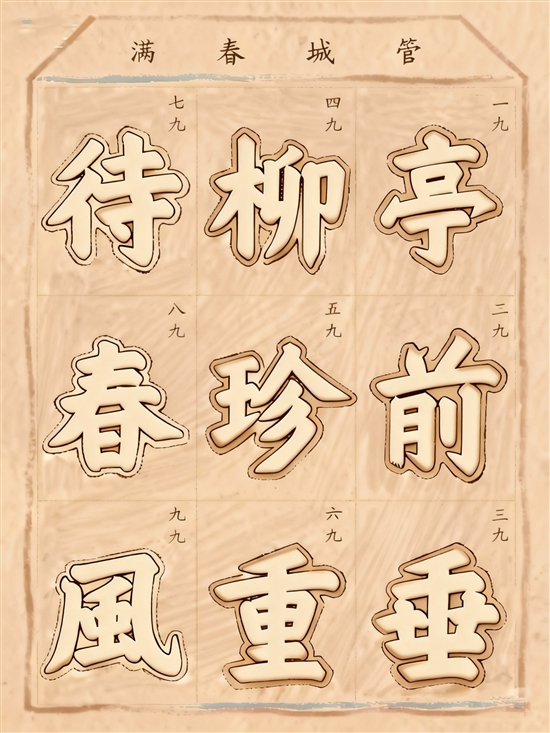 管城春满
一九
亭
三九
前
三九
垂
四九
柳
五九
珍
六九
重
七九
待
八九
春
九九
風